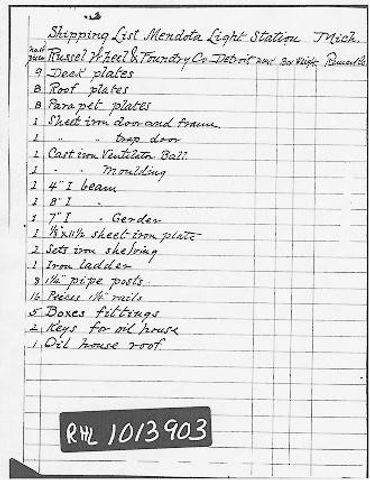 Shipping List Mendota Light Station Mich.
Russel Wheel & Foundry Co Detroit Box Remarks
9 Deck plates
8 Roof plates
8 Parapet plates
1 Sheet iron door and frame
1 " " trap door
1 Cast iron Ventilator Ball
1 " " Moulding
1 4" I beam
1 8" I "
1 7" I " Gerder
1 sheet iron plate
2 Sets iron shelving
1 Iron ladder
8 1¼" pipe posts
16 Peices 1¼" rails
5 Boxes fittings
2 Keys for oil house
1 Oil house roof
RHL 1013903